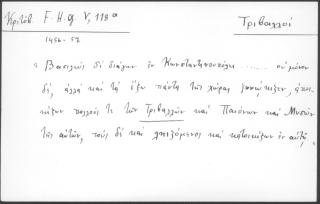 Κριτόβ. F.H.G. V, 118ᵃ
Τριβαλλοί
1456-57
Βασιλεὺς δὲ διάγων ἐν Κωνσταντινουπόλει ........ οὐ μόνον
δέ, ἀλλὰ καὶ τὰ ἔξω πάντα τῆς χώρας
πολλοὺς τε τῶν Τριβαλλῶν καὶ Παιόνων καὶ Μυσῶν
τῆς αὐτῶν, τοὺς δὲ καὶ χειρωσάμενος καὶ κατοικίζων ἐν αὐτῇ